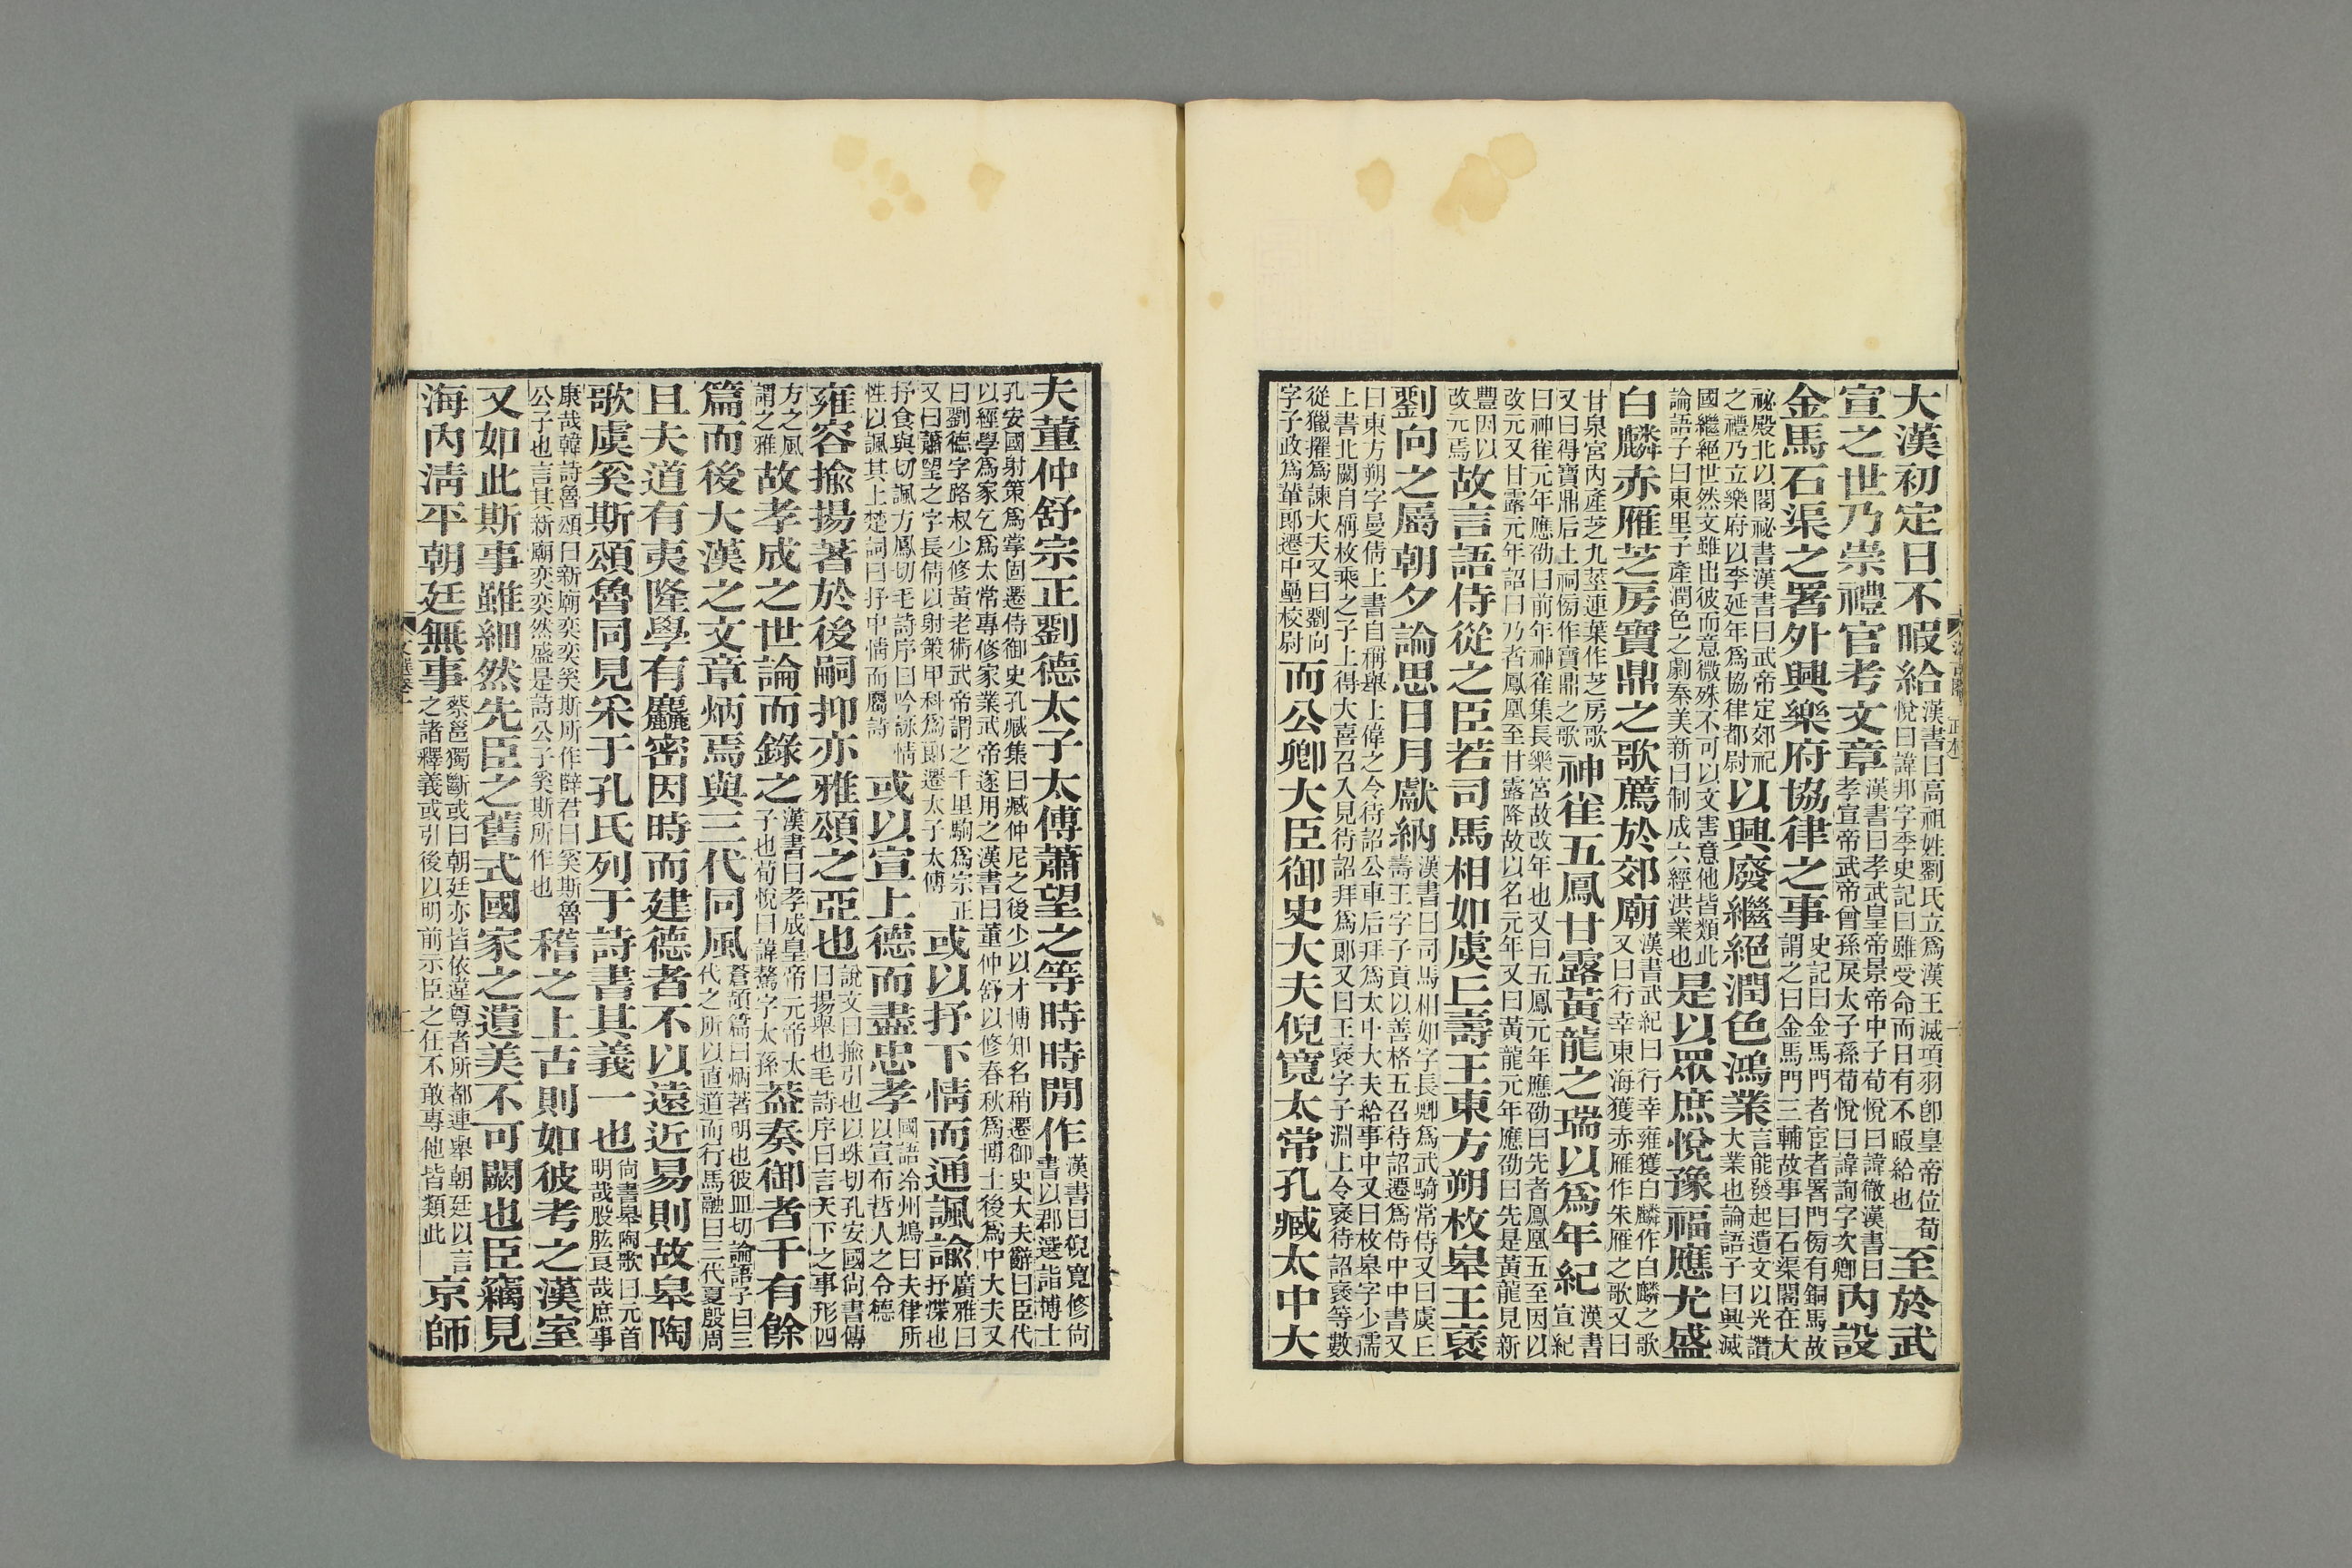 大漢初定日不暇給漢書曰高祖姓劉氏立爲漢王滅項羽卽皇帝位荀悅曰諱邦字季史記曰雖受命而日有不暇給也至於武
宣之世乃崇禮官考文章漢書曰孝武皇帝景帝中子荀悅曰諱徹漢書曰孝宣帝武帝曾孫戾太子孫荀悅曰諱詢字次卿內設
金馬石渠之署外興樂府協律之事史記曰金馬門者宦者署門傍有銅馬故謂之曰金馬門三輔故事曰石渠閣在大
祕殿北以閣祕書漢書曰武帝定郊祀之禮乃立樂府以李延年爲協律都尉以興廢繼絕潤色鴻業言能發起遺文以光讚大業也論語子曰興滅
國繼絕世然文雖出彼而意微殊不可以文害意他皆類此論語子曰東里子產潤色之劇秦美新曰制成六經洪業也是以眾庶悅豫福應尤盛
白麟赤雁芝房寶鼎之歌薦於郊廟漢書武紀曰行幸雍獲白麟作白麟之歌又曰行幸東海獲赤雁作朱雁之歌又曰
甘泉宮內產芝九莖連葉作芝房歌又曰得寶鼎后土祠傍作寶鼎之歌神雀五鳳甘露黃龍之瑞以爲年紀漢書宣紀
曰神雀元年應劭曰前年神雀集長樂宮故改年也又曰五鳳元年應劭曰先者鳳凰五至因以改元又甘露元年詔曰乃者鳳凰至甘露降故以名元年又曰黃龍元年應劭曰先是黃龍見新
豐因以改元焉故言語侍從之臣若司馬相如虞丘壽王東方朔枚皋王褒
劉向之屬朝夕論思日月獻納漢書曰司馬相如字長卿爲武騎常侍又曰虞丘壽王字子貢以善格五召待詔遷爲侍中中書又
曰東方朔字曼倩上書自稱舉上偉之令待詔公車后拜爲太中大夫給事中又曰枚皋字少孺上書北闕自稱枚乘之子上得大喜召入見待詔拜爲郎又曰王褒字子淵上令褒待詔褒等數
從獵擢爲諫大夫又曰劉向字子政爲輦郎遷中壘校尉而公卿大臣御史大夫倪寬太常孔臧太中大
夫董仲舒宗正劉德太子太傅蕭望之等時時閒作漢書曰倪寬修尙書以郡選詣博士
孔安國射策爲掌固遷侍御史孔臧集曰臧仲尼之後少以才博知名稍遷御史大夫辭曰臣代以經學爲家乞爲太常專修家業武帝遂用之漢書曰董仲舒以修春秋爲博士後爲中大夫又
曰劉德字路叔少修黃老術武帝謂之千里駒爲宗正又曰蕭望之字長倩以射策甲科爲郎遷太子太傅或以抒下情而通諷諭廣雅曰抒㵼也
抒食與切諷方鳳切毛詩序曰吟詠情性以諷其上楚詞曰抒中情而屬詩或以宣上德而盡忠孝國語泠州鳩曰夫律所以宣布哲人之令德
雍容揄揚著於後嗣抑亦雅頌之亞也說文曰揄引也以珠切孔安國尙書傳曰揚舉也毛詩序曰言天下之事形四
方之風謂之雅故孝成之世論而錄之漢書曰孝成皇帝元帝太子也荀悅曰諱驁字太孫葢奏御者千有餘
篇而後大漢之文章炳焉與三代同風蒼頡篇曰炳著明也彼皿切論語子曰三代之所以直道而行馬融曰三代夏殷周
且夫道有夷隆學有麤密因時而建德者不以遠近易則故皋陶
歌虞奚斯頌魯同見采于孔氏列于詩書其義一也尙書皋陶歌曰元首明哉股肱良哉庶事
康哉韓詩魯頌曰新廟奕奕奚斯所作薛君曰奚斯魯公子也言其新廟奕奕然盛是詩公子奚斯所作也稽之上古則如彼考之漢室
又如此斯事雖細然先臣之舊式國家之遺美不可闕也臣竊見
海內清平朝廷無事蔡邕獨斷或曰朝廷亦皆依違尊者所都連舉朝廷以言之諸釋義或引後以明前示臣之任不敢專他皆類此京師